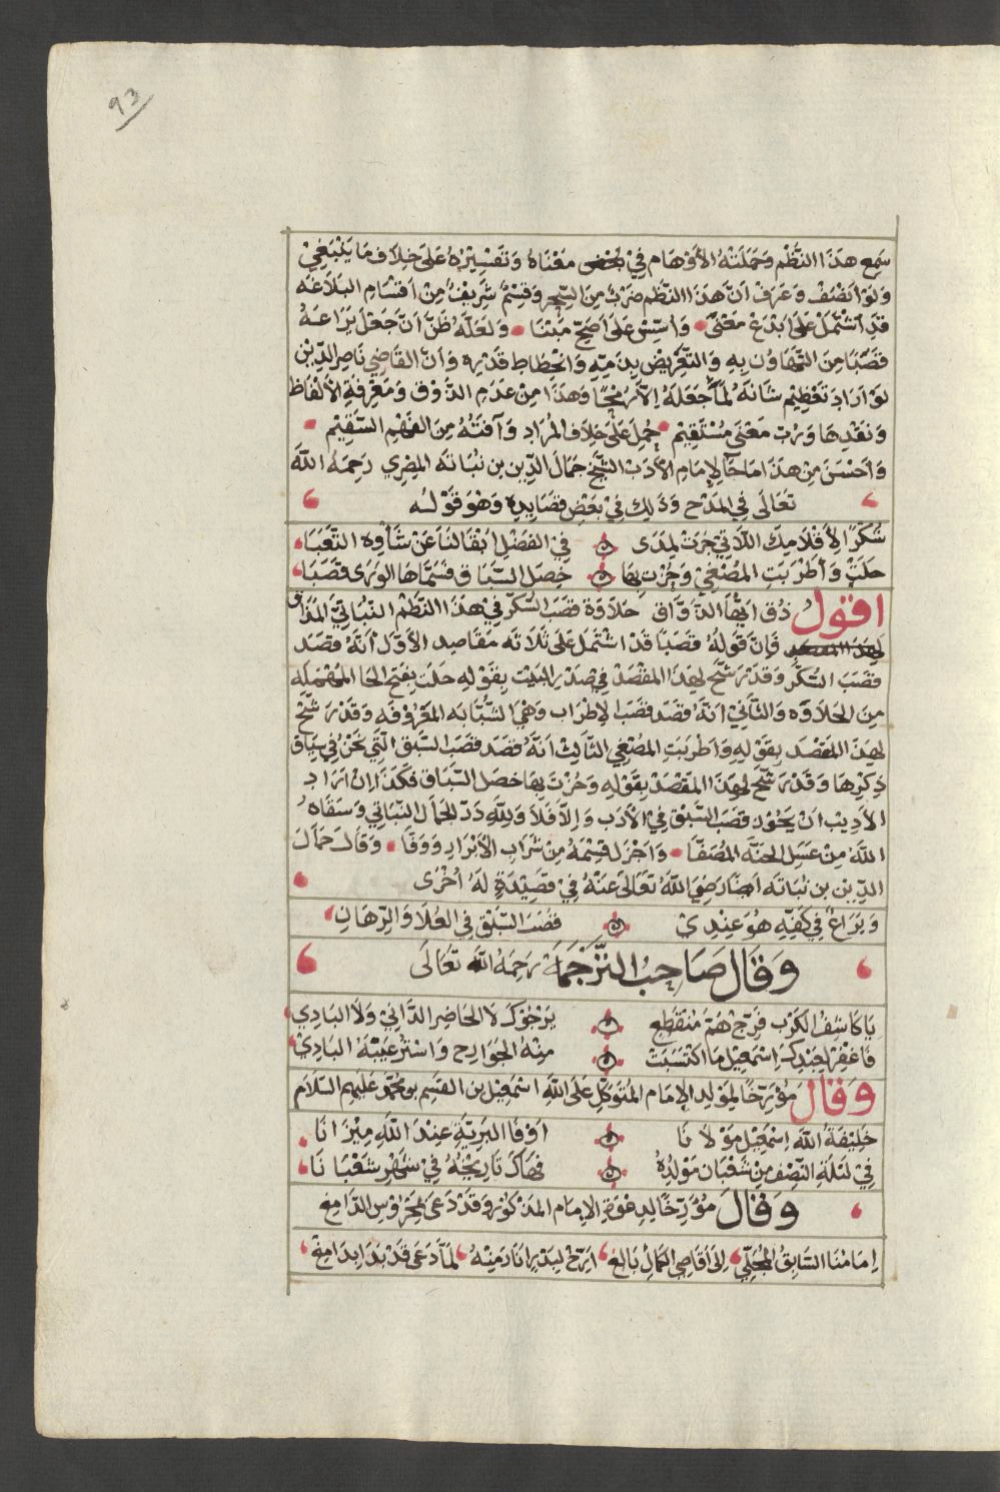 93
سَمِعَ هَذَا النَّظْم وَحَمَلَتْهُ الأَوْهَام فِي بَعْضِ مَعْنَاهُ وَتَفْسِيْرِهُ عَلَى خِلَاف مَا يَنْبَغِيْ
وَلَوْ أَنْصَفْ وَعَرَفْ انَّ هَذَا النَّظْم ضَرْبٌ مِنَ السِّحِر وَقِسْمٌ شَرِيْفٌ مِنْ اَقْسَامِ البَلَاغَه
قَدِ اشْتَمَلْ عَلَى ابْدَعْ مَعْنَىً وَاُسِّسْ عَلَى اَصَحِّ مَبْنَا وَلَعَلَّهُ ظَنَّ انَّ جَعْلَ يَرَاعَهُ
قَصَبًا مِنَ التَّهَاوُن بِهِ وَالتَّعْرِيْضِ بِذَمِّهِ وَانْحِطَاطِ قَدْرِهِ وَانَّ القَاضِي نَاصِر الدِّيْن
لَوْ اَرَادَ تَعْظِيْم شَانَهُ لَمَا جَعَلَهُ اِلَّا رُمْحًا وَهَذَا مِنْ عَدَمِ الذَّوْق وَمَعْرِفَةِ الأَلْفَاظ
وَنَقْدِهَا وَرُبَّ مَعْنَى مُسْتَقِيْم حُمِلَ عَلَى خِلَافِ المُرَادِ وَآفَتُهُ مِنَ الفَهْمِ السَّقِيْم
وَاَحْسَنُ مِنْ هَذَا مَا جَا لِإِمَامِ الأَدَبْ الشَّيْخ جَمَالَ الدِّين بن نُبَاتَه المِصْرِي رَحِمَهُ اللَّهُ
تَعَالَى فِي المَدْحِ وَذَلِكَ فِيْ بَعْضِ قَصَايِدِهِ وَهْوَ قَوْلُه
شُكْرًا لأَقْلَامِكَ اللَّاتِيْ جَرَتْ لِمَدَى فِيْ الفَضْلِ اَبْقَا لَنَا عَنْ شَأْوِهِ التَّعَبَا
حَلَتْ وَأَطْرَبَتِ المُصْغِيْ وَحُزْتَ بِهَا خَصْلَ السِّبَاقِ فَسَمَّاهَا الوَرَى قَصَبَا
اقول ذُق اَيُّهَا الذَّوَّاق حَلَاوَة قَصَبَ السُّكَّر فِيْ هَذَا النَّظْم النُّبَاتِيَّ المَذَاق
فَإِنَّ قَوْلَهُ قَصَبًا قَدْ اشْتَمَلَ عَلَى ثَلَاثَه مَقَاصِد الأَوَّلْ اَنَّهُ قَصَدَ
قَصَبَ السُّكَّر وَقَدْ رَشَّحَ لِهَذَا المَقْصَدْ فِي صَدْرِ البَيْت بِقَوْلِهِ حَلَتْ بِفَتْحِ الحَا المُهْمَلَه
مِنَ الحَلَاوَه وَالثَّانِيْ اَنَّهُ قَصَدَ قَصَبَ الإِطْرَاب وَهْيَ الشَّبَّابَه المَعْرُوْفَه وَقَدْ رَشَّحَ
لِهَذَا المَقْصَد بِقَوْلِهِ وَاَطْرَبَتِ المُصْغِي الثَّالِثْ اَنَّهُ قَصَدَ قَصَبَ السَّبْق الَّتِيْ نَحْنُ فِي سِيَاق
ذِكْرِهَا وَقَدْ رَشَّحَ لِهَذَا المَقْصَدْ بِقَوْلِهِ وَحُزْتَ بِهَا خَصْلَ السِّبَاق فَكَذَا اِنْ اَرَادَ
الأَدِيْب اَنْ يَحُوْز قَصَبَ السَّبْق فِيْ الأَدَب وَاِلَّا فَلَا وَلِلَّهِ دَرّ الجَمَال النُّبَاتِي وَسَقَاهُ
اللَّهُ مِنْ عَسَلِ الجَنَّه المُصَفَّا وَاَجْزَلَ قِسْمَهُ مِنْ شَرَابِ الأَبْرَار وَوَفَا وَقَالَ جَمَال
الدِّيْن بن نُبَاتَه اَيْضًا رَضِيَ اللَّهُ تَعَالَى عَنْهُ فِيْ قَصِيْدَةٍ لَهُ اُخْرَى
وَيَرَاعٌ فِي كَفِّهِ هُوَ عِنْدِيْ قَصَبَ السَّبْق فِي العُلَا وَالرِّهَانِ
وَقَالَ صَاحِبُ التَّرْجَمَةَ رَحِمَهُ اللَّهُ تَعَالَى
يَا كَاشِفَ الكَرْبِ فَرِّجْ هَمَّ مُنْقَطِعٍ يَرْجُوْكَ لَا الحَاضِرِ الدَّانِيْ وَلَا البَادِي
فَاغْفِرْ لِعَبْدِكَ اِسْمَعِيْلَ مَا اكْتَسَبَتْ مِنْهُ الجَوَارِحِ وَاسْتُرْ عَيْبَهُ البَادِيْ
وَقَالَ مُؤَرِّخًا لِمَوْلِدِ الإِمَام المُتَوَكِّلِ عَلَى اللَّهِ اسْمَعِيْل بن القَسِم بن مُحَمَّد عَلَيْهِم السَّلَام
خَلِيْفَةُ اللَّهِ اِسْمَعِيْل مَوْلَانَا اَوْفَا البَرِيَّةِ عِنْدَ اللَّهِ مِيْزَانَا
فِيْ لَيْلَةِ النِّصْفِ مِنْ شَعْبَان مَوْلِدُهُ فَهَاكَ تَارِيْخُهُ فِيْ شَهْرِ شَعْبَانَا
وَقَالَ مُؤَرِّخًا لِدِعْوَةِ الإِمَام المَذْكُوْر وَقَدْ دَعَى بِمَحْرُوْسِ الدَّامِغ
اِمَامُنَا السَّابِقُ المُجَلِّي اِلَى اَقَاصِي الكَمَالِ بَالِغ اَرِّخْ لِبَدْرٍ اَنَارَ مِنْهُ لَمَّا دَعَى قَدْ بَدَا بِدَامِغْ